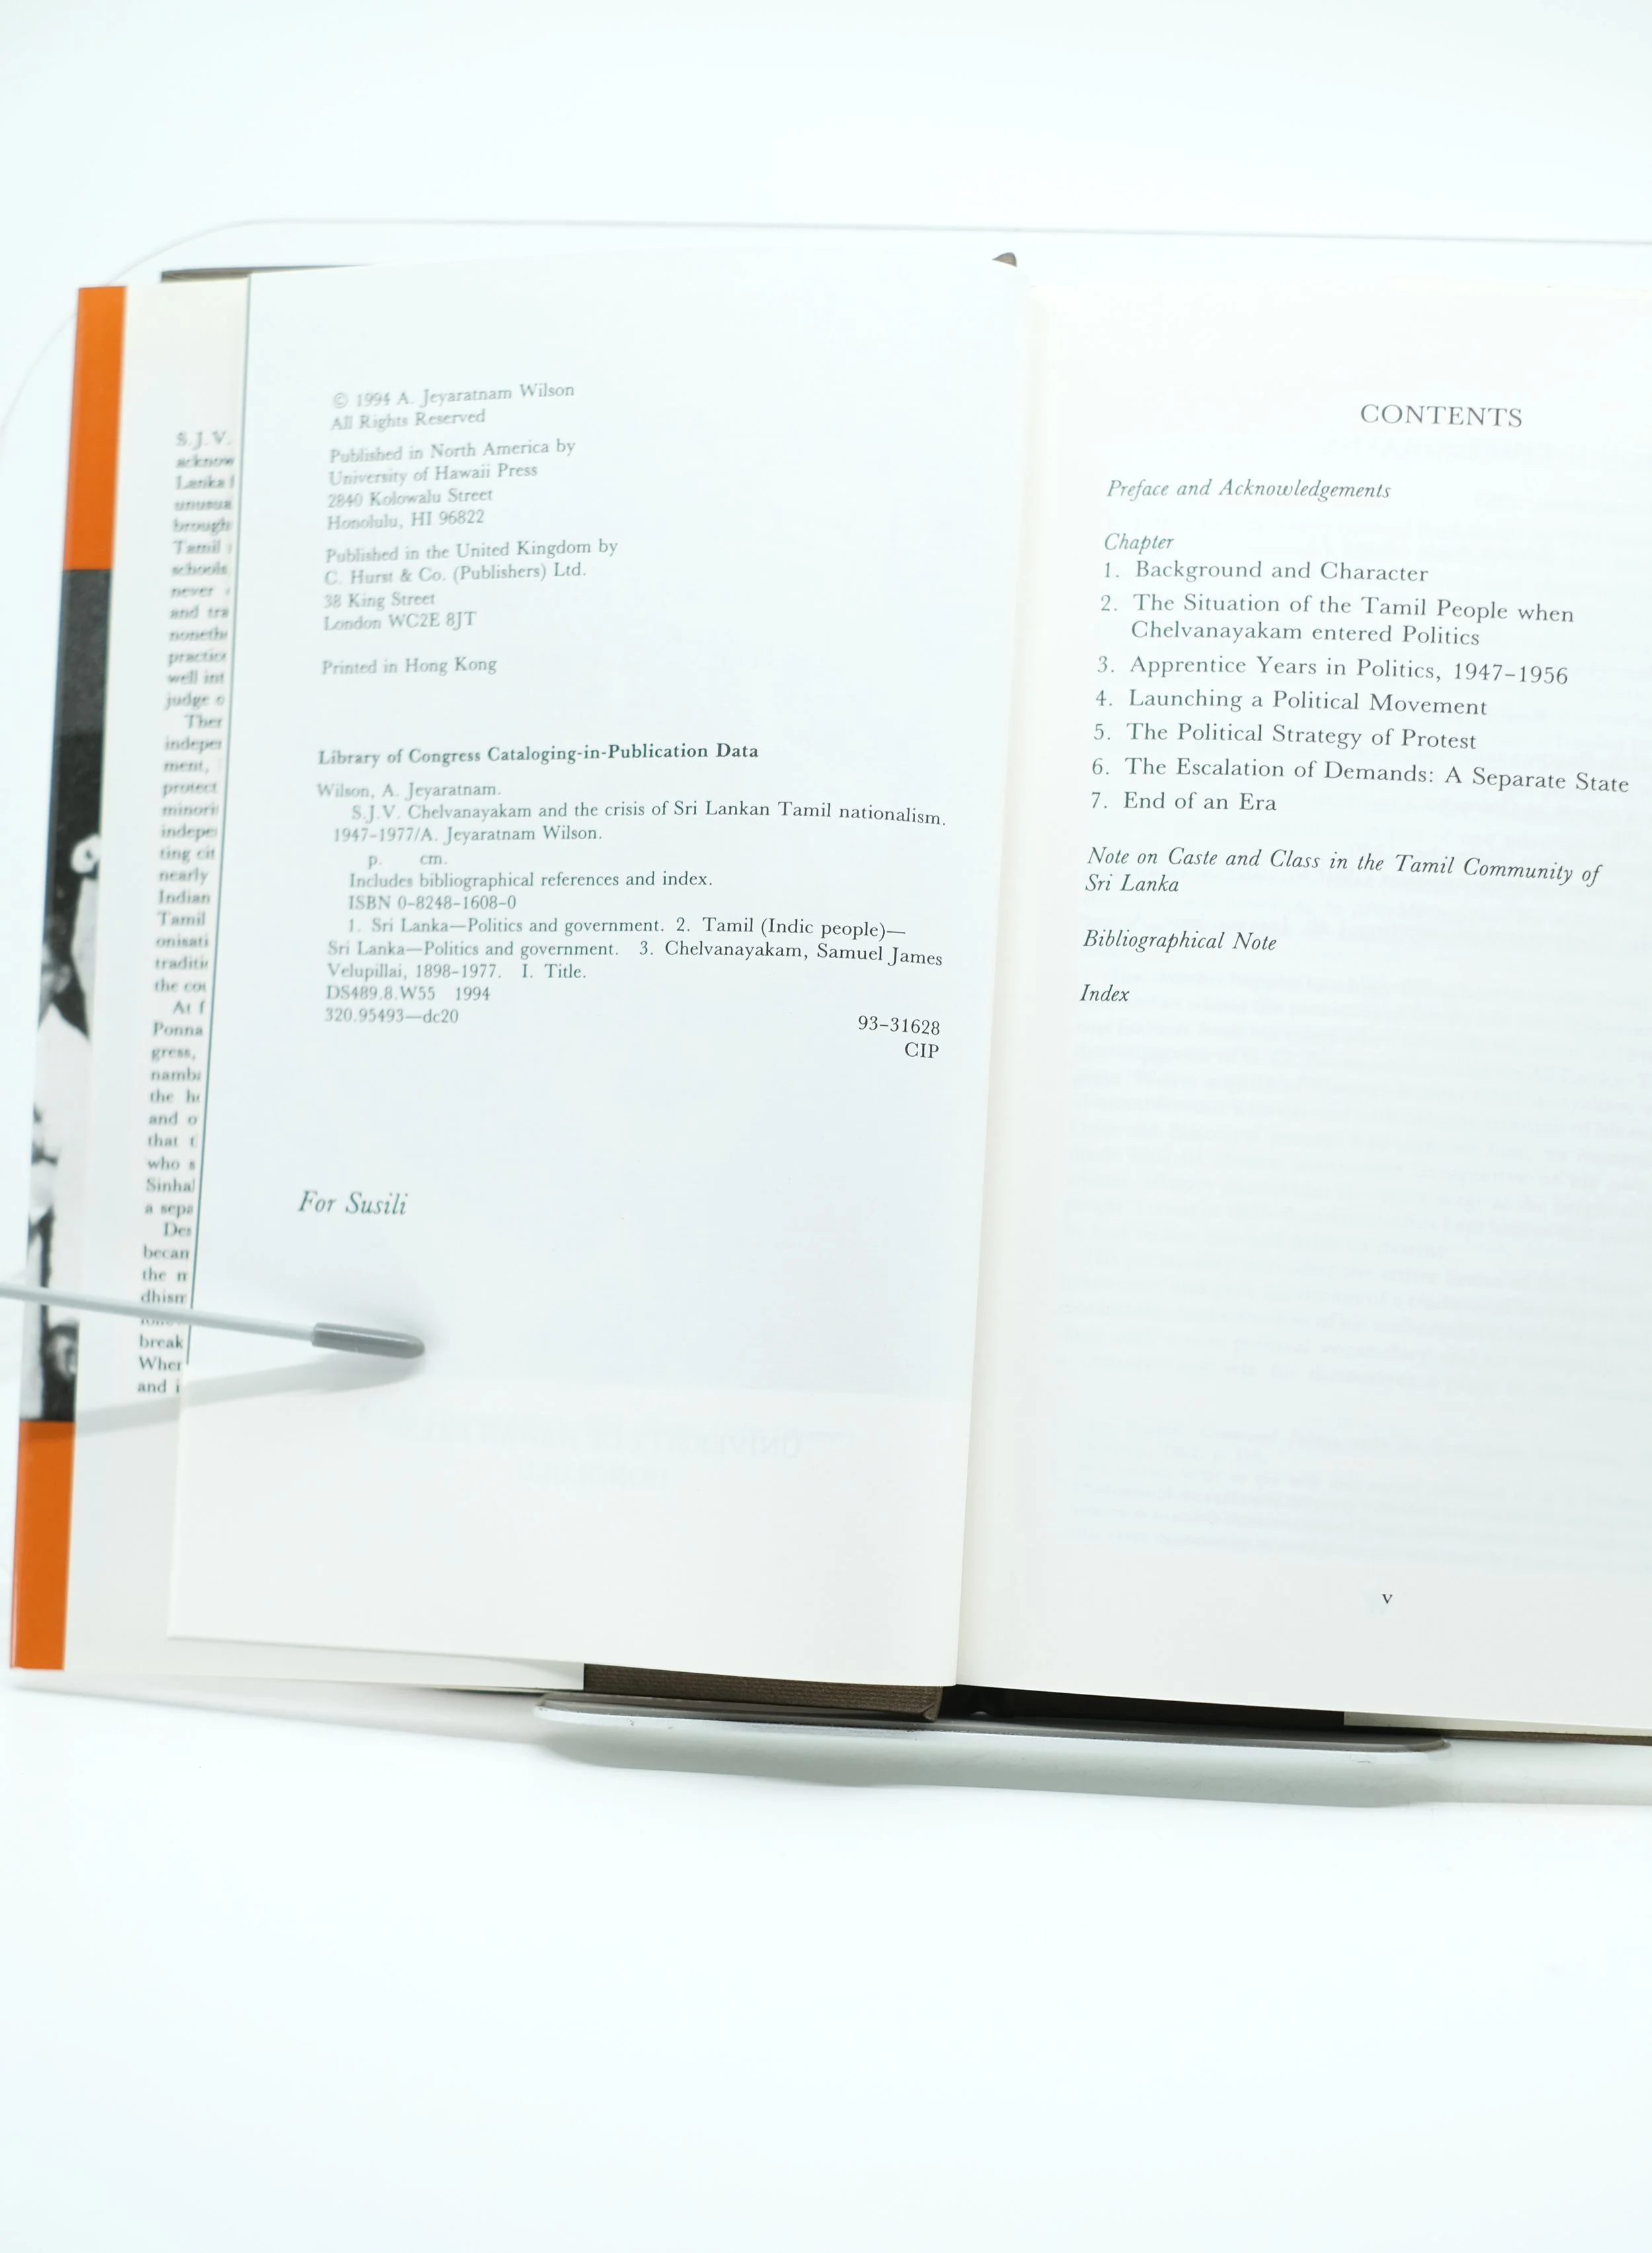 S.J.V.
acknow
Lanka
unusua
brough
Tamil
schools
never
and tra
noneth
practice
well int
judge o
Ther
indeper
ment,
protect
minori
indepe
ting cit
nearly
Indian
Tamil
onisati
traditi
the cou
At f
Ponna
gress,
namb
the h
and o
that t
who s
Sinhal
a sepa
Des
becan
the n
dhism
break
When
and i
© 1994 A. Jeyaratnam Wilson
All Rights Reserved
Published in North America by
University of Hawaii Press
2840 Kolowalu Street
Honolulu, HI 96822
Published in the United Kingdom by
C. Hurst & Co. (Publishers) Ltd.
38 King Street
London WC2E 8JT
Printed in Hong Kong
Library of Congress Cataloging-in-Publication Data
Wilson, A. Jeyaratnam.
S.J.V. Chelvanayakam and the crisis of Sri Lankan Tamil nationalism.
1947–1977/A. Jeyaratnam Wilson.
p. cm.
Includes bibliographical references and index.
ISBN 0-8248-1608-0
1. Sri Lanka—Politics and government. 2. Tamil (Indic people)—
Sri Lanka—Politics and government. 3. Chelvanayakam, Samuel James
Velupillai, 1898–1977. I. Title.
DS489.8.W55 1994
320.95493—dc20
93–31628
CIP
For Susili
CONTENTS
Preface and Acknowledgements
Chapter
1. Background and Character
2. The Situation of the Tamil People when
Chelvanayakam entered Politics
3. Apprentice Years in Politics, 1947–1956
4. Launching a Political Movement
5. The Political Strategy of Protest
6. The Escalation of Demands: A Separate State
7. End of an Era
Note on Caste and Class in the Tamil Community of
Sri Lanka
Bibliographical Note
Index
v